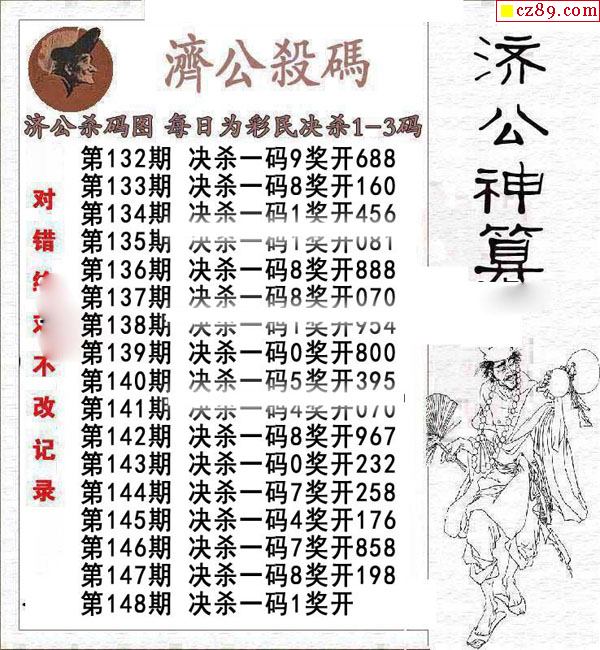 cz89.com
濟公殺碼
济公杀码图 每日为彩民决杀1-3码
第132期 决杀一码9奖开688
第133期 决杀一码8奖开160
第134期 决杀一码1奖开456
第135期 决杀一码1奖开081
第136期 决杀一码8奖开888
第137期 决杀一码8奖开070
第138期 决杀一码1奖开954
第139期 决杀一码0奖开800
第140期 决杀一码5奖开395
第141期 决杀一码4奖开070
第142期 决杀一码8奖开967
第143期 决杀一码0奖开232
第144期 决杀一码7奖开258
第145期 决杀一码4奖开176
第146期 决杀一码7奖开858
第147期 决杀一码8奖开198
第148期 决杀一码1奖开
对错绝对不改记录
济公神算